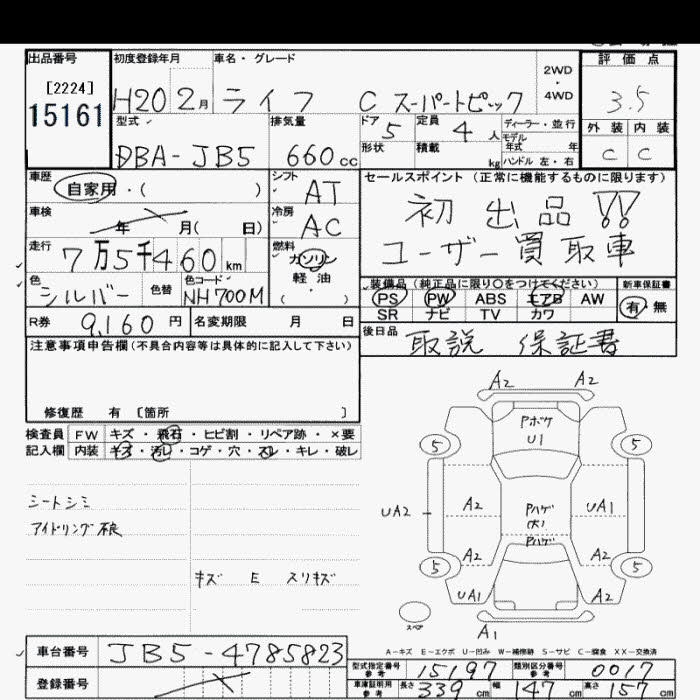 出品番号 初度登録年月 車名・グレード 2WD・4WD 評価点
[2224]
15161 H20 2月 ライフ C スーパートピック 3.5
型式 排気量 ドア 定員 ディーラー・並行 外装 内装
DBA-JB5 660cc 5 4人 モデル年式 年 C C
形状 積載 kg ハンドル 左・右
車歴 自家用・( ) シフト AT セールスポイント (正常に機能するものに限ります)
車検 年 月( 日) 冷房 AC 初出品!!
走行 7万5千460km 燃料 ガソリン ユーザー買取車
色 シルバー 色替 色コード NH700M 軽油 ( ・ )
装備品(純正品に限り○をつけてください) 新車保証書
PS PW ABS エアB AW 有・無
SR ナビ TV カワ
R券 9,160円 名変期限 月 日
後日品 取説 保証書
注意事項申告欄(不具合内容等は具体的に記入して下さい)
修復歴 有 [箇所 ]
検査員 FW キズ・飛石・ヒビ割・リペア跡・×要
記入欄 内装 キズ・汚レ・コゲ・穴・スレ・キレ・破レ
シートシミ
アイドリング不良
キズ E スリキズ
A2 A2
Pボケ
U1
5 5
UA2 A2 Pハゲ UA1
(大)
Pハゲ
A2 A2
5 5
UA1 A2
スペア
A1
A-キズ E-エクボ U-凹み W-補修跡 S-サビ C-腐食 XX-交換済
車台番号 JB5-4785823
登録番号
型式指定番号 参考 15197 類別区分番号 参考 0017
車庫証明用 参考 長さ 339cm 幅 147cm 高さ 157cm